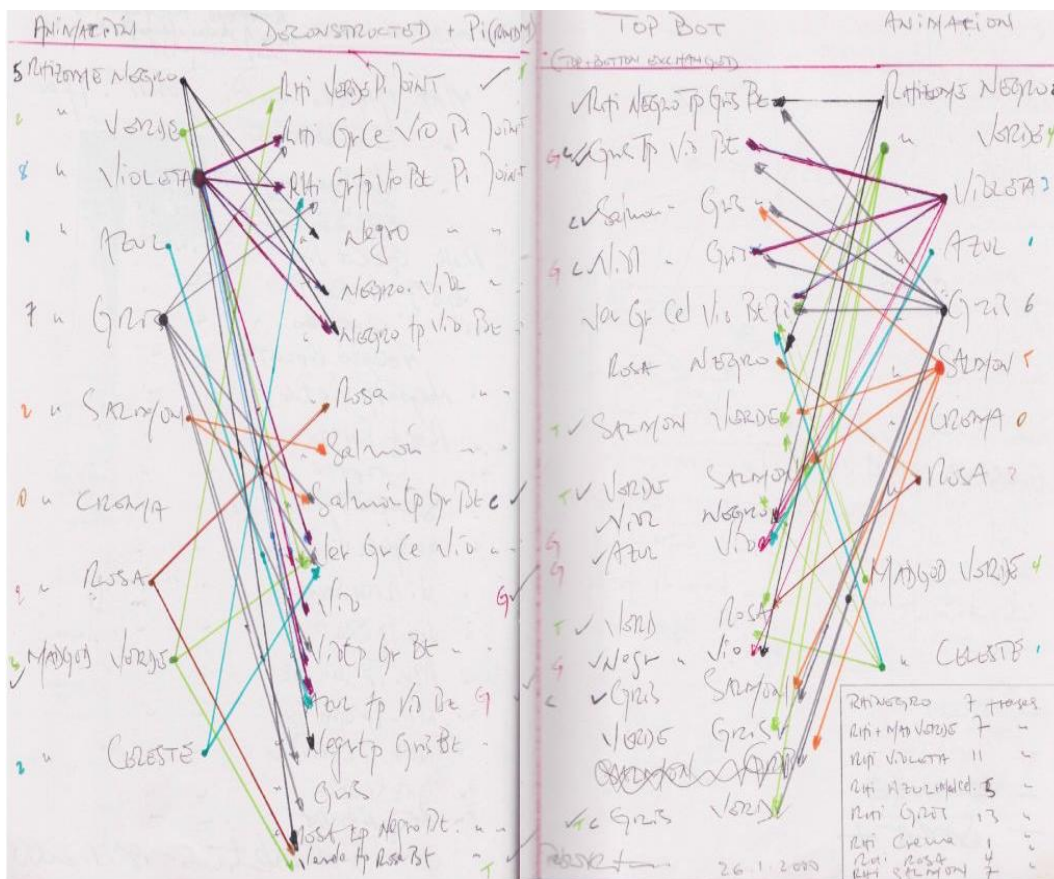 ANIMACIÓN DECONSTRUCTED + Pi
5 RHIZOME NEGRO
2 " VERDE
8 " VIOLETA
1 " AZUL
7 " GRIS
2 " SALMON
0 " CREMA
2 " ROSA
3 MADGOD VERDE
2 " CELESTE
RHi VERDE Pi JOINT ✓
RHi GrCe Vio Pi Joint
RHi Grtp Vio Bt. Pi Joint
" Negro " "
" NEGRO. Viol "
" NEGRO tp Vio Bt
" Rosa " "
" Salmón " "
" Salmón tp Gr Bt c ✓
" Ver Gr Ce Vio " "
" Vio G ✓
" Vio tp Gr Bt "
Azul tp Vio Bt G ✓
Negro tp Gris Bt "
" Gris
Rosa tp Negro Bt. " "
Verde tp Rosa Bt T ✓
TOP BOT ANIMACION
(TOP+BOTTOM EXCHANGED)
✓ RHi NEGRO Tp Gris Bt
G c ✓ Gris Tp Vio Bt
c ✓ Salmon " Gris
G c ✓ Viol " Gris
Ver Gr Cel Vio Bt Pi
ROSA NEGRO
T ✓ SALMON VERDE
T ✓ VERDE SALMON
G ✓ Viol NEGRO
G ✓ AZUL Vio
T ✓ VERD ROSA
G ✓ Negr " Vio
c ✓ GRIS SALMON
VERDE GRIS
T c ✓ GRIS VERD
RHIZOME NEGRO 2
" VERDE
" VIOLETA 3
" AZUL 1
" GRIS 6
" SALMON 5
" CREMA 0
" ROSA 2
MADGOD VERDE 4
" CELESTE 1
26.1.2000
RHI NEGRO 7
RHi + MAD VERDE 7 "
RHi VIOLETA 11 "
RHi AZUL 5 "
RHi GRIS 13 "
RHi Crema 1 "
RHi ROSA 4 "
RHi SALMON 7 "